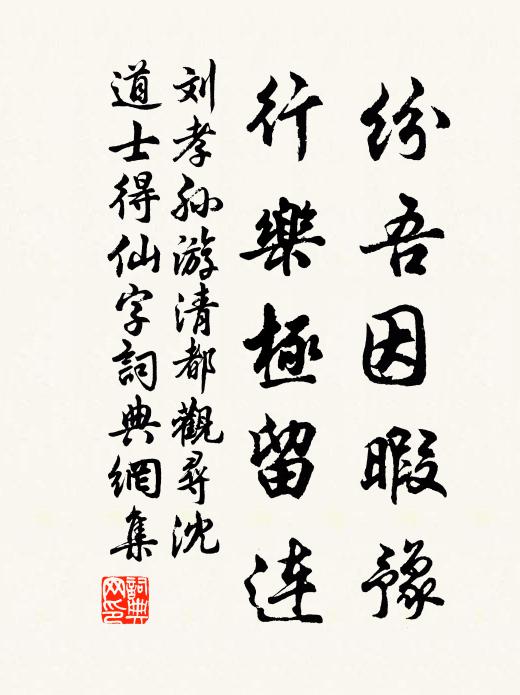 纷吾因暇豫
行樂極留連
刘孝孙游清都觀尋沈
道士得仙字詞典網集
詞典网印